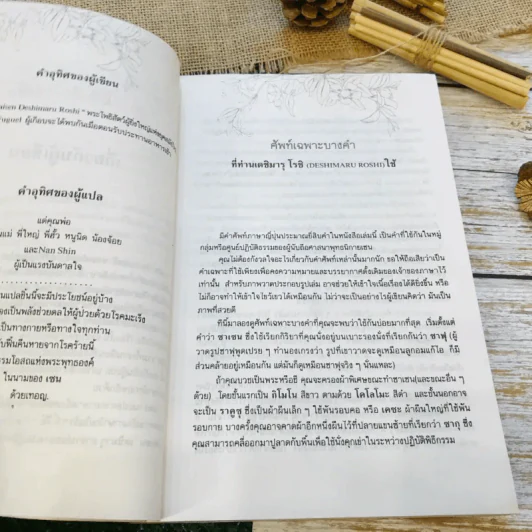 คำอุทิศของผู้เขียน
Deshimaru Roshi " พระโพธิสัตว์ผู้ยิ่งใหญ่แห่งยุคสมัย
ผู้เกือบจะได้พบกันเมื่อตอนรับประทานอาหารเช้า
คำอุทิศของผู้แปล
แด่คุณพ่อ
แม่ พี่ใหญ่ พี่ฮั้ว หนูนิด น้องจ้อย
และNan Shin
ผู้เป็นแรงบันดาลใจ
แปลชิ้นนี้จะมีประโยชน์อยู่บ้าง
เป็นพลังช่วยดลให้ผู้ป่วยด้วยโรคมะเร็ง
เป็นทางกายหรือทางใจทุกท่าน
ฟื้นคืนหายจากโรคร้ายนี้
โอสถแห่งพระพุทธองค์
ในนามของ เซน
ด้วยเทอญ.
ศัพท์เฉพาะบางคำ
ที่ท่านเดชิมารุ โรชิ (DESHIMARU ROSHI)ใช้
มีคำศัพท์ภาษาญี่ปุ่นประมาณยี่สิบคำในหนังสือเล่มนี้ เป็นคำที่ใช้กันในหมู่
กลุ่มหรือศูนย์ปฏิบัติธรรมของผู้นับถือศาสนาพุทธนิกายเซน
คุณไม่ต้องกังวลใจอะไรเกี่ยวกับคำศัพท์เหล่านั้นมากนัก ขอให้ถือเสียว่าเป็น
คำเฉพาะที่ใช้เพียงเพื่อคงความหมายและบรรยากาศดั้งเดิมของเจ้าของภาษาไว้
เท่านั้น สำหรับภาพวาดประกอบรูปเล่ม อาจช่วยให้เข้าใจเนื้อเรื่องได้ดียิ่งขึ้น หรือ
ไม่ก็อาจทำให้เข้าใจไขว้เขวได้เหมือนกัน ไม่ว่าจะเป็นอย่างไรผู้เขียนคิดว่า มันเป็น
ภาพที่สวยดี
ทีนี้มาลองดูศัพท์เฉพาะบางคำที่คุณจะพบว่าใช้กันบ่อยมากที่สุด เริ่มตั้งแต่
คำว่า ซาเซน ซึ่งใช้เรียกกิริยาที่คุณนั่งอยู่บนเบาะรองนั่งที่เรียกกันว่า ซาฟุ (ผู้
วาดรูปซาฟุพูดเปรย ๆ ทำนองเกรงว่า รูปที่เขาวาดจะดูเหมือนลูกอมแก้ไอ ก็มี
ส่วนคล้ายอยู่เหมือนกัน แต่มันก็ดูเหมือนซาฟุจริง ๆ นั่นแหละ)
ถ้าคุณบวชเป็นพระหรือชี คุณจะครองผ้าพิเศษขณะทำซาเซน(และขณะอื่น ๆ
ด้วย) โดยชั้นแรกเป็น กิโมโน สีขาว ตามด้วย โคโลโมะ สีดำ และชั้นนอกอาจ
จะเป็น ราคูซุ ซึ่งเป็นผ้าผืนเล็ก ๆ ใช้พันรอบคอ หรือ เคซะ ผ้าผืนใหญ่ที่ใช้พัน
รอบกาย บางครั้งคุณอาจคาดผ้าอีกหนึ่งผืนไว้ที่ปลายแขนซ้ายที่เรียกว่า ซากุ ซึ่ง
คุณสามารถคลี่ออกมาปูลาดกับพื้นเพื่อใช้นั่งคุกเข่าในระหว่างปฏิบัติพิธีกรรม